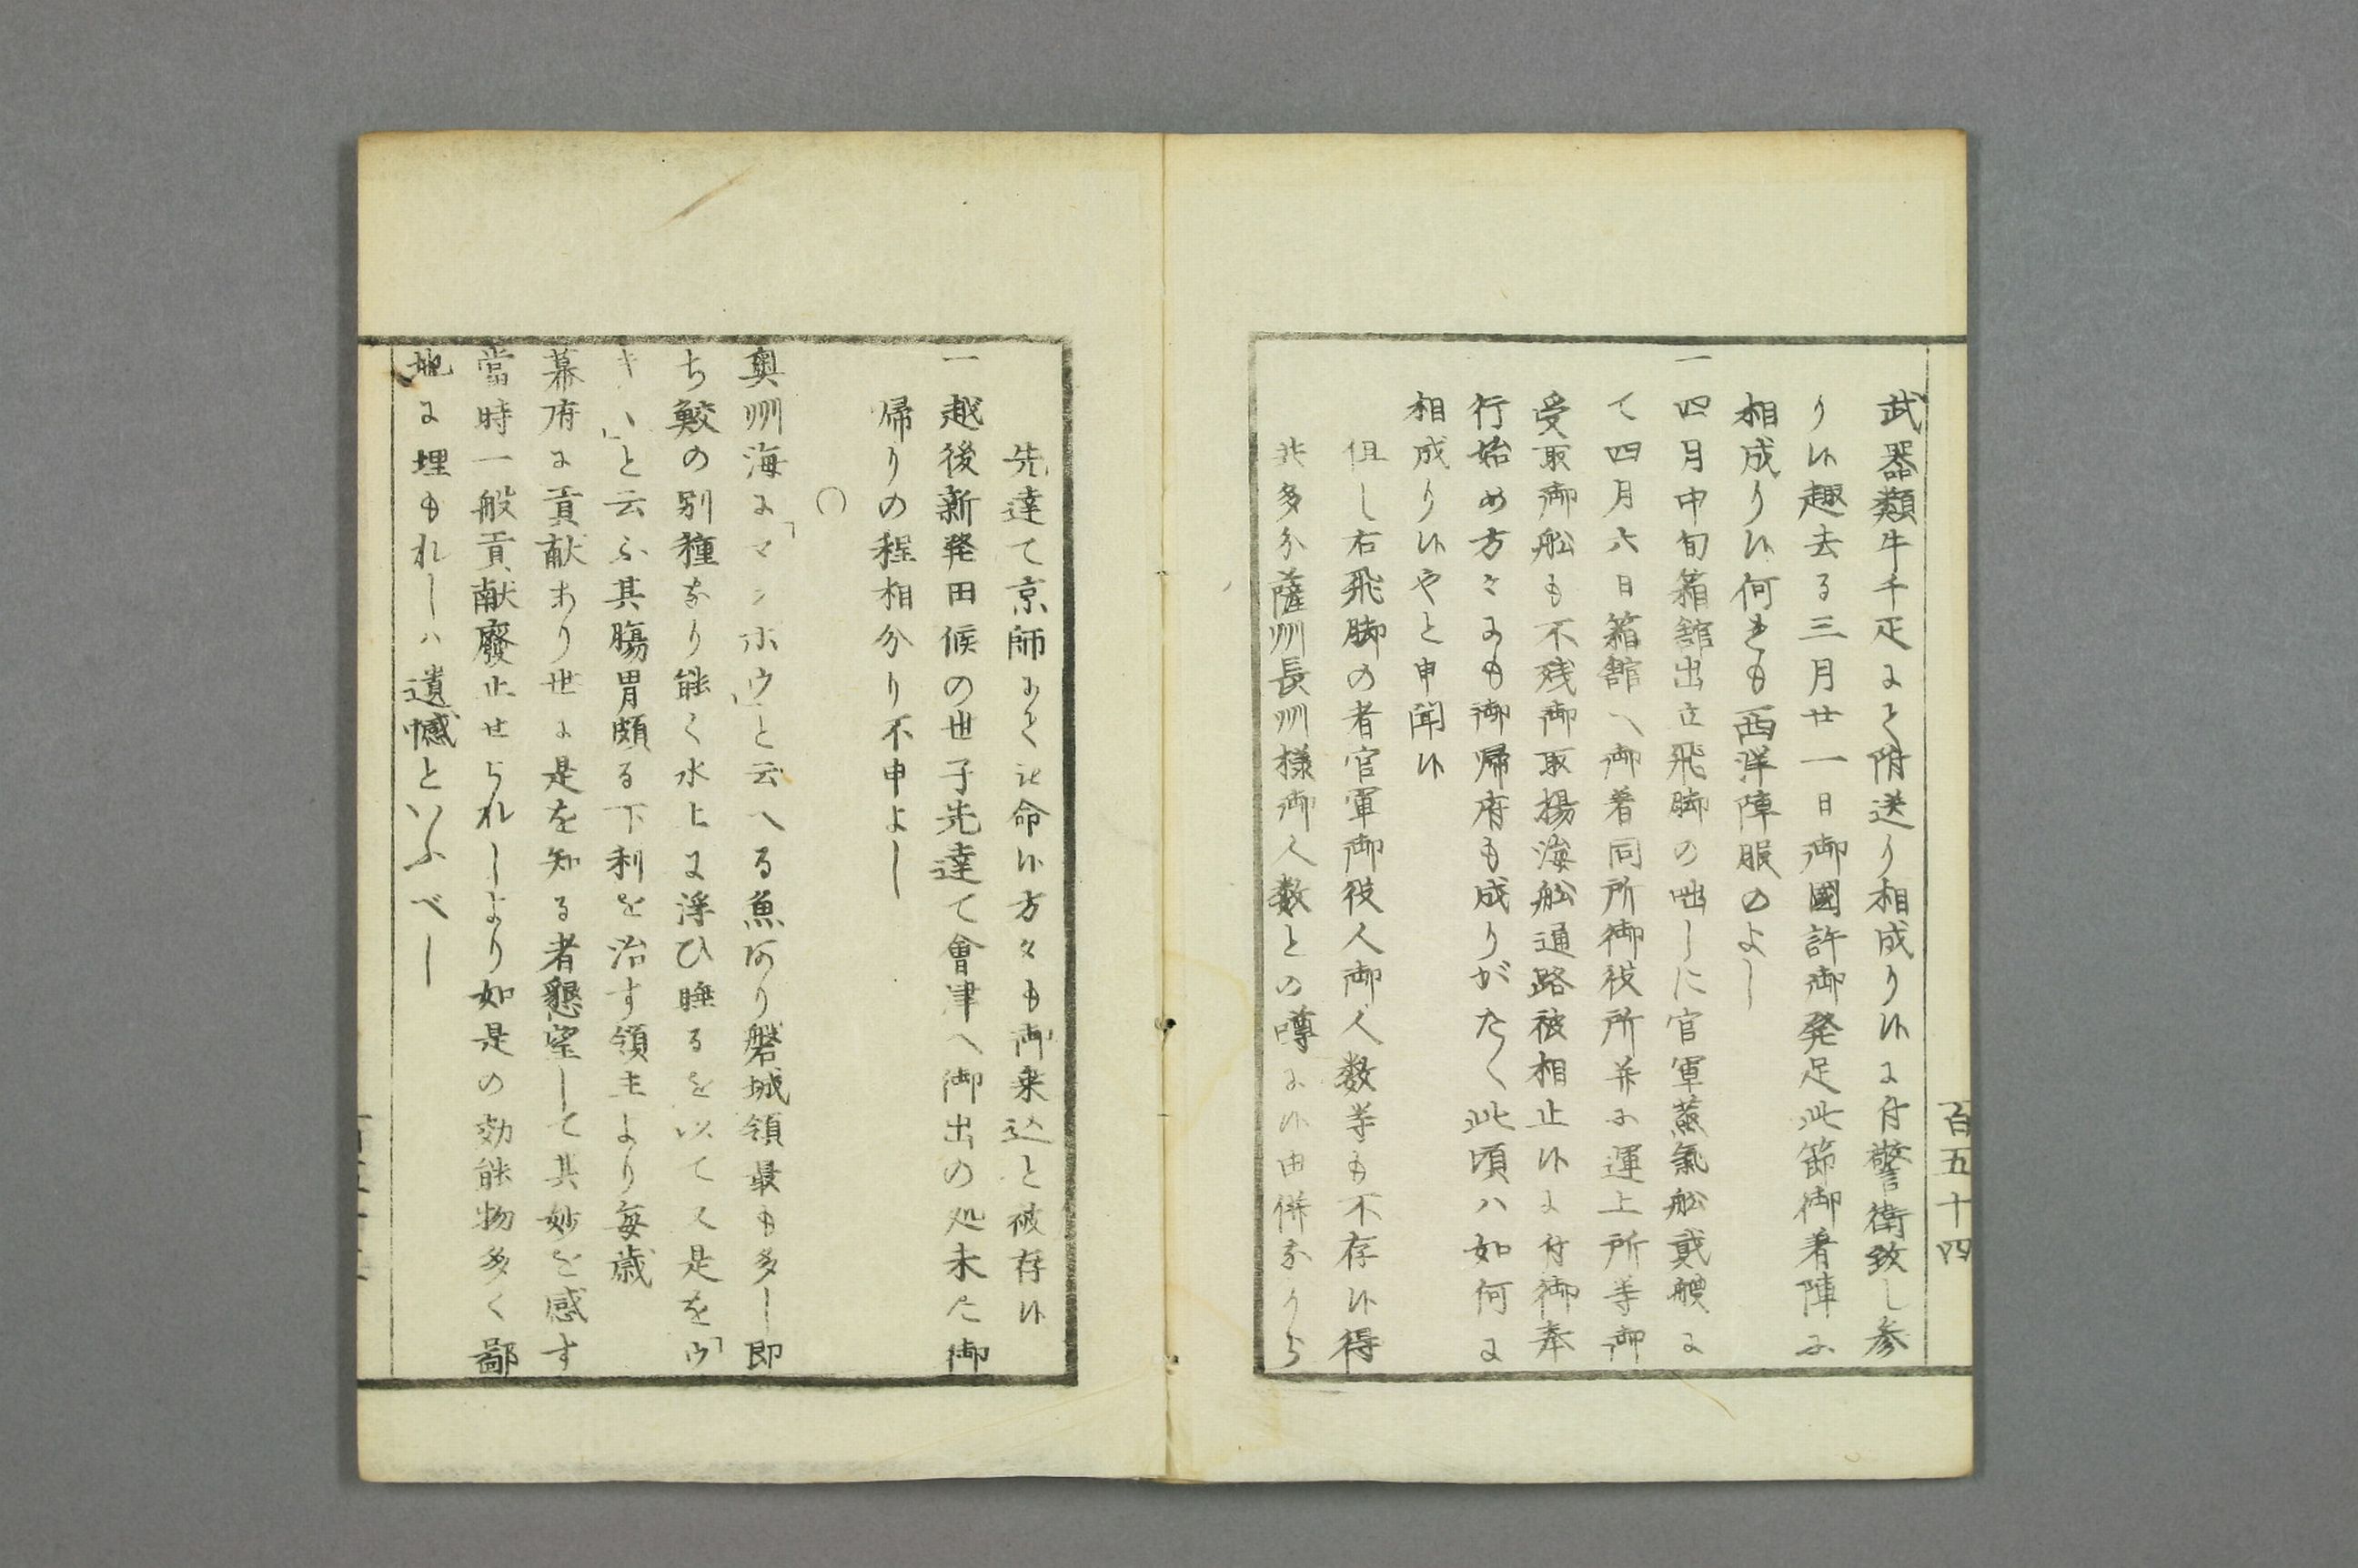 百五十四
武器類牛千疋にて附送り相成り候に付警衛致し参
り候趣去る三月廿一日御國許御発足此節御着陣に
相成り候何きも西洋陣服のよし
一四月中旬箱舘出立飛脚の咄しに官軍蒸氣船貳艘に
て四月六日箱舘へ御着同所御役所并に運上所等御
受取御船も不残御取揚海船通路被相止候に付御奉
行始め方々にも御帰府も成りがたく此頃ハ如何に
相成り候やと申聞候
但し右飛脚の者官軍御役人御人数等も不存候得
共多分薩州長州様御人数との噂に候由併ながら
先達て京師にて命候方々も御乗込と被存候
一越後新発田候の世子先達て會津へ御出の処未た御
帰りの程相分り不申よし
〇
奥州海に「マンホウ」と云へる魚あり磐城領最も多し即
ち鮫の別種なり能く水上に浮ひ睡るを以て又是を「ウ
キヽ」と云ふ其膓胃頗る下利を治す領主より毎歳
幕府に貢献あり世に是を知る者懇望して其妙を感す
當時一般貢献廢止せられしより如是の効能物多く鄙
地に埋もれしハ遺憾といふべし